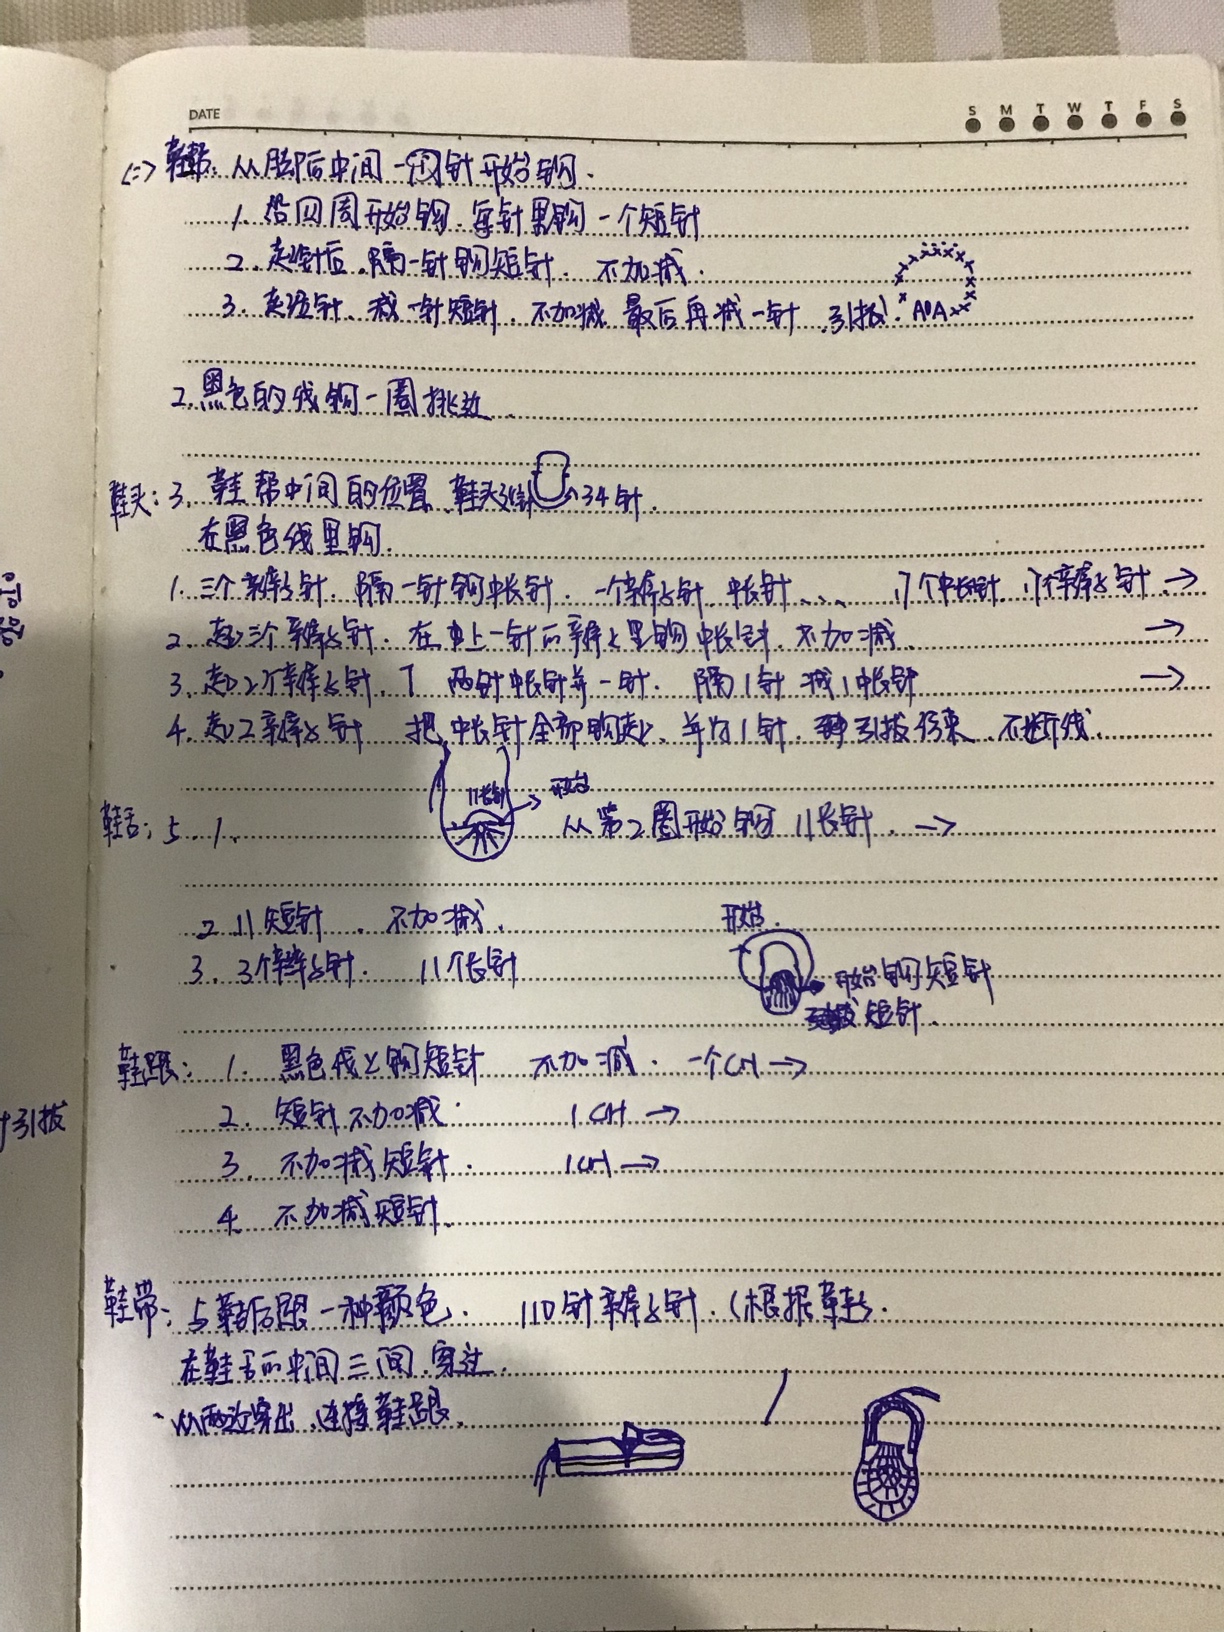 DATE
S M T W T F S
<二> 鞋帮: 从脚后中间一针开始钩.
1. 沿四周开始钩. 每针里钩一个短针
2. 起针后. 隔一针钩短针. 不加减.
3. 起针. 减一针短针. 不加减 最后再减一针. 引拔.
AOA
2. 黑色的线钩一圈挑边.
鞋头: 3. 鞋帮中间的位置. 鞋头34针 34针.
在黑色线里钩.
1. 三个辫子针. 隔一针钩中长针. 一个辫子针. 中长针.... 17个中长针. 17个辫子针 →
2. 起三个辫子针. 在上一针的辫子里钩中长针. 不加减. →
3. 起2个辫子针. 两针中长针并一针. 隔1针 减1中长针 →
4. 起2辫子针 把中长针全部钩起. 并为1针. 引拔. 不断线.
11长针 → 开始
鞋舌: 5. 1. 从第2圈开始钩 11长针. →
2 11短针. 不加减.
3. 3个辫子针. 11个长针
开始.
开始钩短针
短针.
鞋跟: 1. 黑色线上钩短针 不加减. 一个CH →
2. 短针不加减. 1CH →
3. 不加减短针. 1CH →
4. 不加减短针.
鞋带: 与鞋后跟一种颜色. 110针辫子针. (根据鞋).
在鞋舌的中间三间. 穿过.
从两边穿出. 连接鞋跟.
引拔